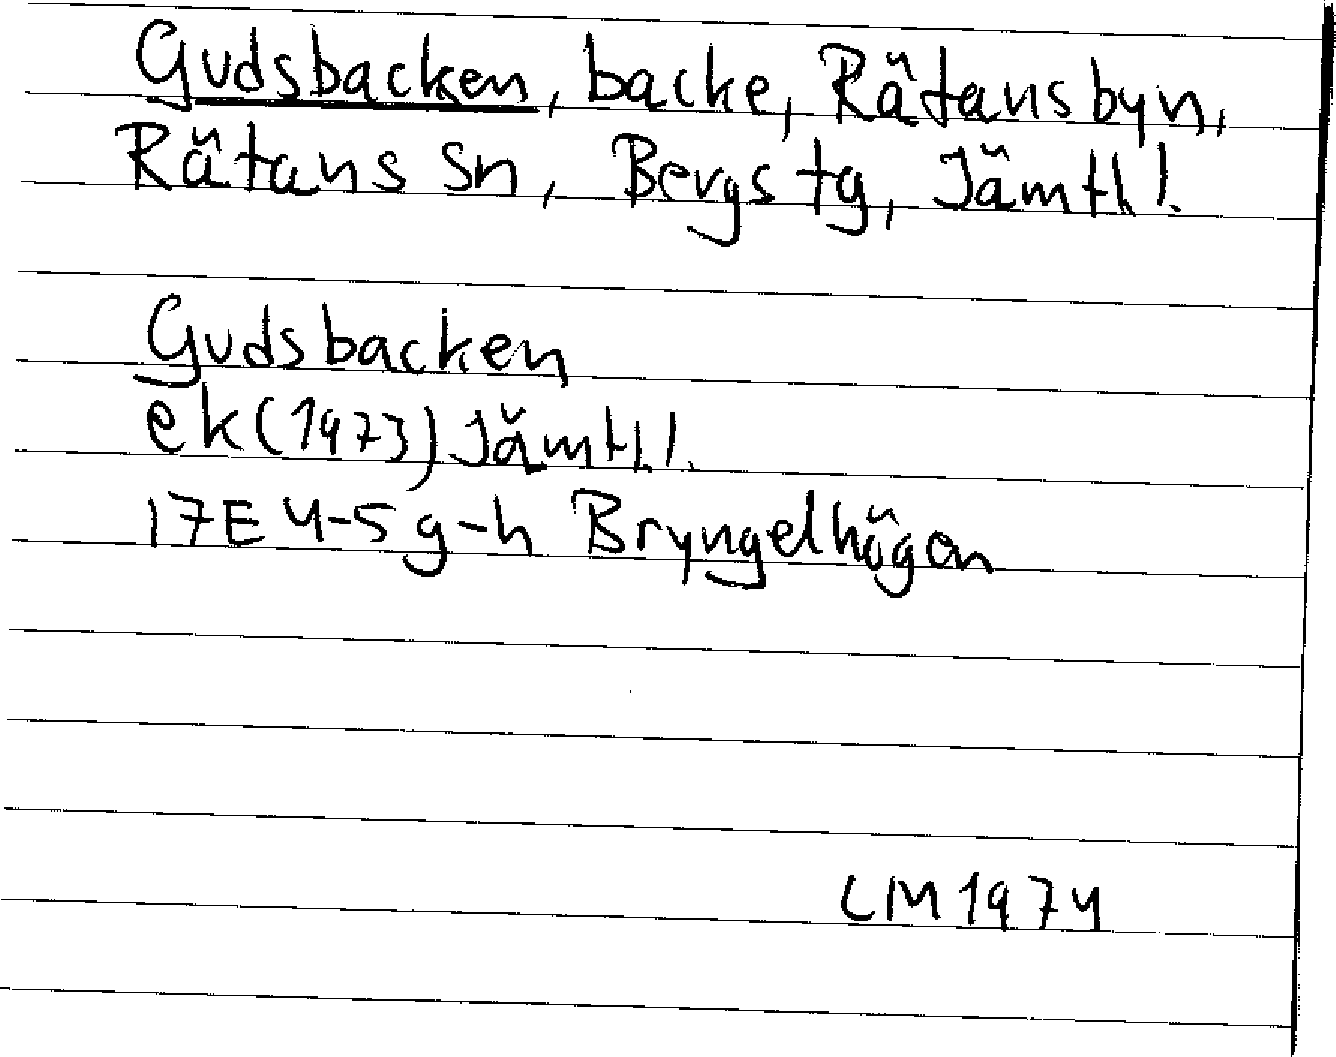 Gudsbacken, backe, Rätansbyn,
Rätans sn, Bergs tg, Jämtl l.
Gudsbacken
ek (1973) Jämtl. l.
17E 4-5 g-h Bryngelhögen
LM 1974